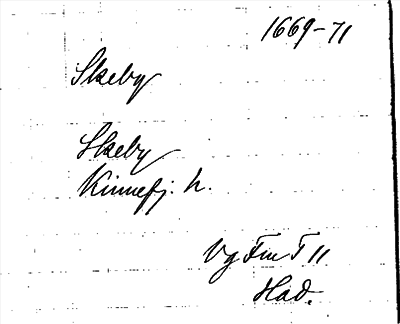 1669-71
Skeby
Skeby
Kinnefj. h.
Vg Fm T 11
Had.